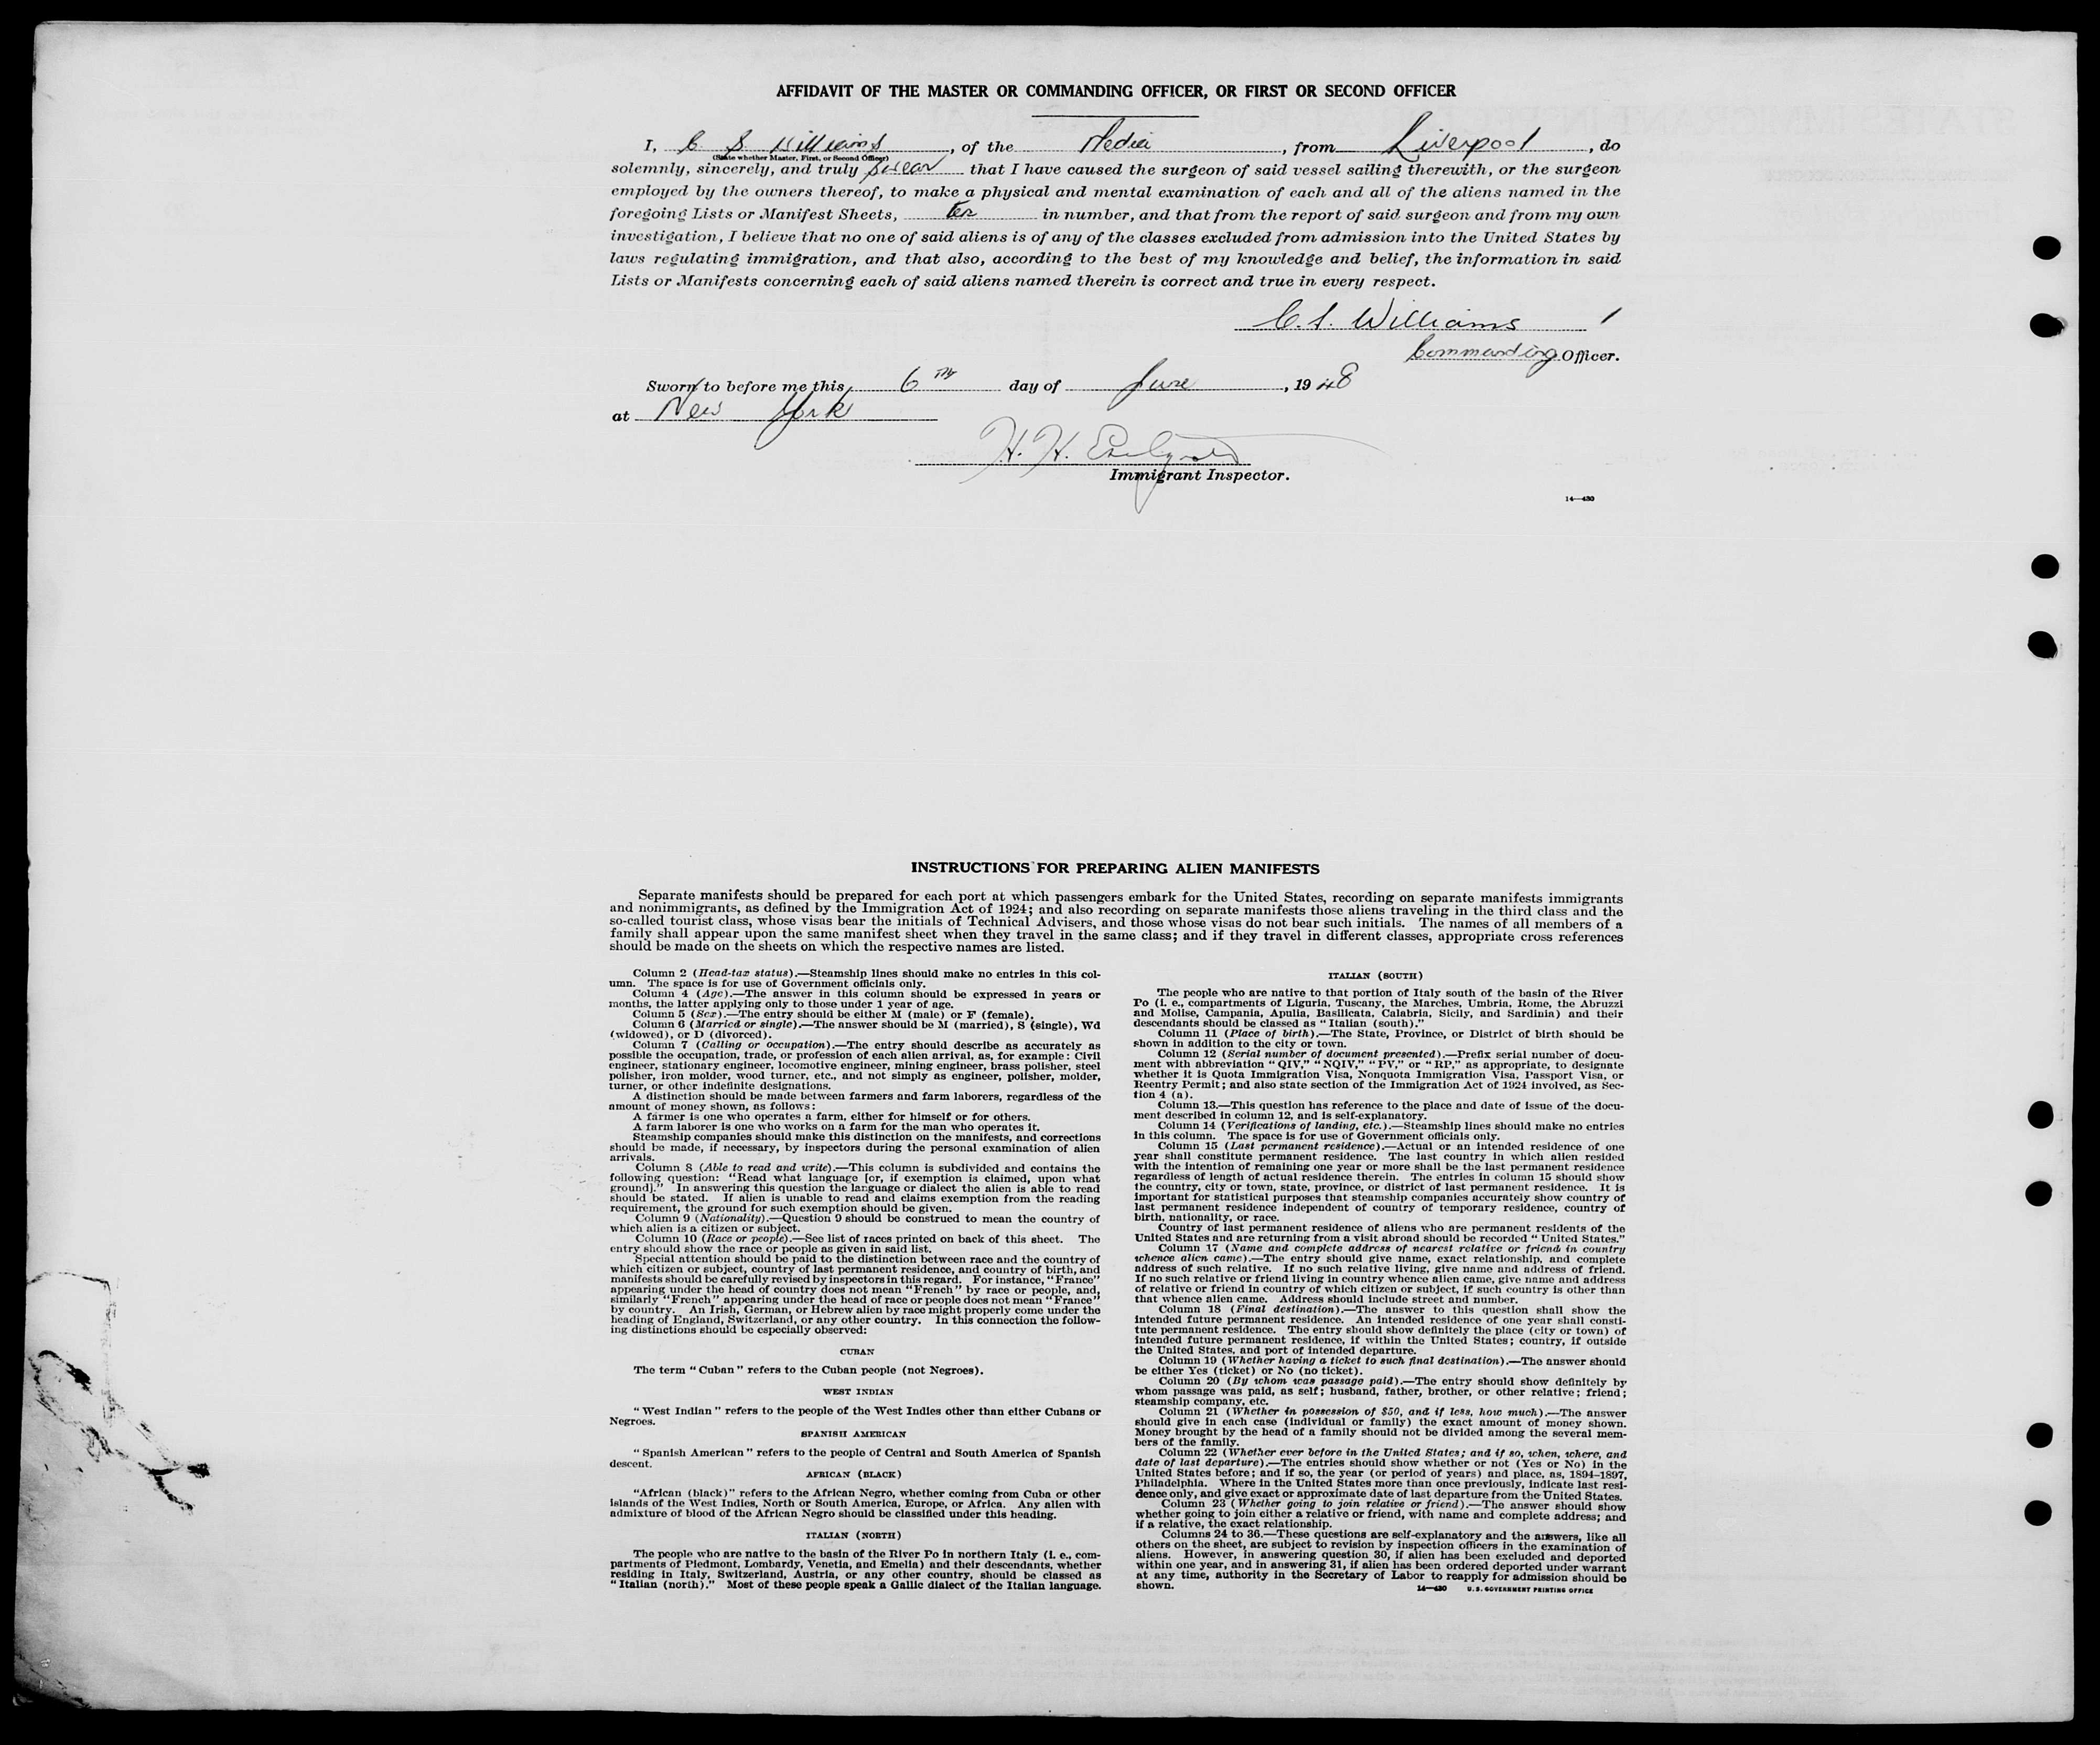 AFFIDAVIT OF THE MASTER OR COMMANDING OFFICER, OR FIRST OR SECOND OFFICER
I, C. S. Williams, of the Media, from Liverpool, do
(State whether Master, First, or Second Officer)
solemnly, sincerely, and truly swear that I have caused the surgeon of said vessel sailing therewith, or the surgeon
employed by the owners thereof, to make a physical and mental examination of each and all of the aliens named in the
foregoing Lists or Manifest Sheets, ten in number, and that from the report of said surgeon and from my own
investigation, I believe that no one of said aliens is of any of the classes excluded from admission into the United States by
laws regulating immigration, and that also, according to the best of my knowledge and belief, the information in said
Lists or Manifests concerning each of said aliens named therein is correct and true in every respect.
C. S. Williams
Commanding Officer.
Sworn to before me this 6th day of June, 1948
at New York
H. H.
Immigrant Inspector.
14—430
INSTRUCTIONS FOR PREPARING ALIEN MANIFESTS
Separate manifests should be prepared for each port at which passengers embark for the United States, recording on separate manifests immigrants
and nonimmigrants, as defined by the Immigration Act of 1924; and also recording on separate manifests those aliens traveling in the third class and the
so-called tourist class, whose visas bear the initials of Technical Advisers, and those whose visas do not bear such initials. The names of all members of a
family shall appear upon the same manifest sheet when they travel in the same class; and if they travel in different classes, appropriate cross references
should be made on the sheets on which the respective names are listed.
Column 2 (Head-tax status).—Steamship lines should make no entries in this col-
umn. The space is for use of Government officials only.
Column 4 (Age).—The answer in this column should be expressed in years or
months, the latter applying only to those under 1 year of age.
Column 5 (Sex).—The entry should be either M (male) or F (female).
Column 6 (Married or single).—The answer should be M (married), S (single), Wd
(widowed), or D (divorced).
Column 7 (Calling or occupation).—The entry should describe as accurately as
possible the occupation, trade, or profession of each alien arrival, as, for example: Civil
engineer, stationary engineer, locomotive engineer, mining engineer, brass polisher, steel
polisher, iron molder, wood turner, etc., and not simply as engineer, polisher, molder,
turner, or other indefinite designations.
A distinction should be made between farmers and farm laborers, regardless of the
amount of money shown, as follows:
A farmer is one who operates a farm, either for himself or for others.
A farm laborer is one who works on a farm for the man who operates it.
Steamship companies should make this distinction on the manifests, and corrections
should be made, if necessary, by inspectors during the personal examination of alien
arrivals.
Column 8 (Able to read and write).—This column is subdivided and contains the
following question: "Read what language [or, if exemption is claimed, upon what
ground]." In answering this question the language or dialect the alien is able to read
should be stated. If alien is unable to read and claims exemption from the reading
requirement, the ground for such exemption should be given.
Column 9 (Nationality).—Question 9 should be construed to mean the country of
which alien is a citizen or subject.
Column 10 (Race or people).—See list of races printed on back of this sheet. The
entry should show the race or people as given in said list.
Special attention should be paid to the distinction between race and the country of
which citizen or subject, country of last permanent residence, and country of birth, and
manifests should be carefully revised by inspectors in this regard. For instance, "France"
appearing under the head of country does not mean "French" by race or people, and,
similarly "French" appearing under the head of race or people does not mean "France"
by country. An Irish, German, or Hebrew alien by race might properly come under the
heading of England, Switzerland, or any other country. In this connection the follow-
ing distinctions should be especially observed:
CUBAN
The term "Cuban" refers to the Cuban people (not Negroes).
WEST INDIAN
"West Indian" refers to the people of the West Indies other than either Cubans or
Negroes.
SPANISH AMERICAN
"Spanish American" refers to the people of Central and South America of Spanish
descent.
AFRICAN (BLACK)
"African (black)" refers to the African Negro, whether coming from Cuba or other
islands of the West Indies, North or South America, Europe, or Africa. Any alien with
admixture of blood of the African Negro should be classified under this heading.
ITALIAN (NORTH)
The people who are native to the basin of the River Po in northern Italy (i. e., com-
partments of Piedmont, Lombardy, Venetia, and Emelia) and their descendants, whether
residing in Italy, Switzerland, Austria, or any other country, should be classed as
"Italian (north)." Most of these people speak a Gallic dialect of the Italian language.
ITALIAN (SOUTH)
The people who are native to that portion of Italy south of the basin of the River
Po (i. e., compartments of Liguria, Tuscany, the Marches, Umbria, Rome, the Abruzzi
and Molise, Campania, Apulia, Basilicata, Calabria, Sicily, and Sardinia) and their
descendants should be classed as "Italian (south)."
Column 11 (Place of birth).—The State, Province, or District of birth should be
shown in addition to the city or town.
Column 12 (Serial number of document presented).—Prefix serial number of docu-
ment with abbreviation "QIV," "NQIV," "PV," or "RP," as appropriate, to designate
whether it is Quota Immigration Visa, Nonquota Immigration Visa, Passport Visa, or
Reentry Permit; and also state section of the Immigration Act of 1924 involved, as Sec-
tion 4 (a).
Column 13.—This question has reference to the place and date of issue of the docu-
ment described in column 12, and is self-explanatory.
Column 14 (Verifications of landing, etc.).—Steamship lines should make no entries
in this column. The space is for use of Government officials only.
Column 15 (Last permanent residence).—Actual or an intended residence of one
year shall constitute permanent residence. The last country in which alien resided
with the intention of remaining one year or more shall be the last permanent residence
regardless of length of actual residence therein. The entries in column 15 should show
the country, city or town, state, province, or district of last permanent residence. It is
important for statistical purposes that steamship companies accurately show country of
last permanent residence independent of country of temporary residence, country of
birth, nationality, or race.
Country of last permanent residence of aliens who are permanent residents of the
United States and are returning from a visit abroad should be recorded "United States."
Column 17 (Name and complete address of nearest relative or friend in country
whence alien came).—The entry should give name, exact relationship, and complete
address of such relative. If no such relative living, give name and address of friend.
If no such relative or friend living in country whence alien came, give name and address
of relative or friend in country of which citizen or subject, if such country is other than
that whence alien came. Address should include street and number.
Column 18 (Final destination).—The answer to this question shall show the
intended future permanent residence. An intended residence of one year shall consti-
tute permanent residence. The entry should show definitely the place (city or town) of
intended future permanent residence, if within the United States; country, if outside
the United States, and port of intended departure.
Column 19 (Whether having a ticket to such final destination).—The answer should
be either Yes (ticket) or No (no ticket).
Column 20 (By whom was passage paid).—The entry should show definitely by
whom passage was paid, as self; husband, father, brother, or other relative; friend;
steamship company, etc.
Column 21 (Whether in possession of $50, and if less, how much).—The answer
should give in each case (individual or family) the exact amount of money shown.
Money brought by the head of a family should not be divided among the several mem-
bers of the family.
Column 22 (Whether ever before in the United States; and if so, when, where, and
date of last departure).—The entries should show whether or not (Yes or No) in the
United States before; and if so, the year (or period of years) and place, as, 1894–1897,
Philadelphia. Where in the United States more than once previously, indicate last resi-
dence only, and give exact or approximate date of last departure from the United States.
Column 23 (Whether going to join relative or friend).—The answer should show
whether going to join either a relative or friend, with name and complete address; and
if a relative, the exact relationship.
Columns 24 to 36.—These questions are self-explanatory and the answers, like all
others on the sheet, are subject to revision by inspection officers in the examination of
aliens. However, in answering question 30, if alien has been excluded and deported
within one year, and in answering 31, if alien has been ordered deported under warrant
at any time, authority in the Secretary of Labor to reapply for admission should be
shown.
14—430 U. S. GOVERNMENT PRINTING OFFICE